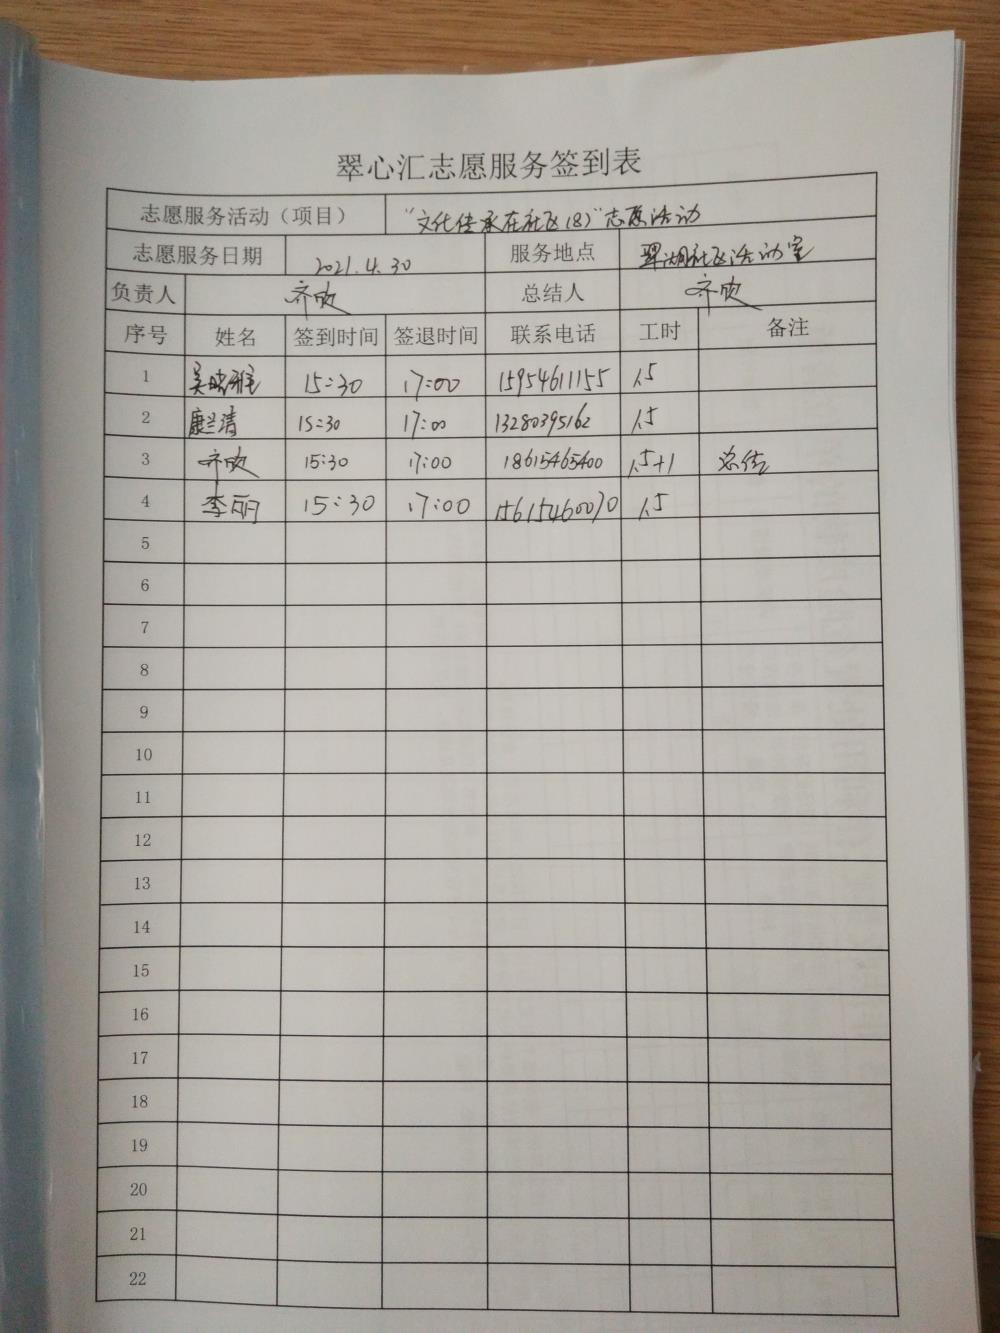 翠心汇志愿服务签到表
志愿服务活动（项目） “文化传承在社区(8)”志愿活动
志愿服务日期 2021.4.30 服务地点 翠湖社区活动室
负责人 齐欣 总结人 齐欣
序号 姓名 签到时间 签退时间 联系电话 工时 备注
1 吴晓雅 15:30 17:00 15954611155 1.5
2 康兰清 15:30 17:00 13280395162 1.5
3 齐欣 15:30 17:00 18615465400 1.5+1 总结
4 李丽 15:30 17:00 15615460070 1.5
5
6
7
8
9
10
11
12
13
14
15
16
17
18
19
20
21
22